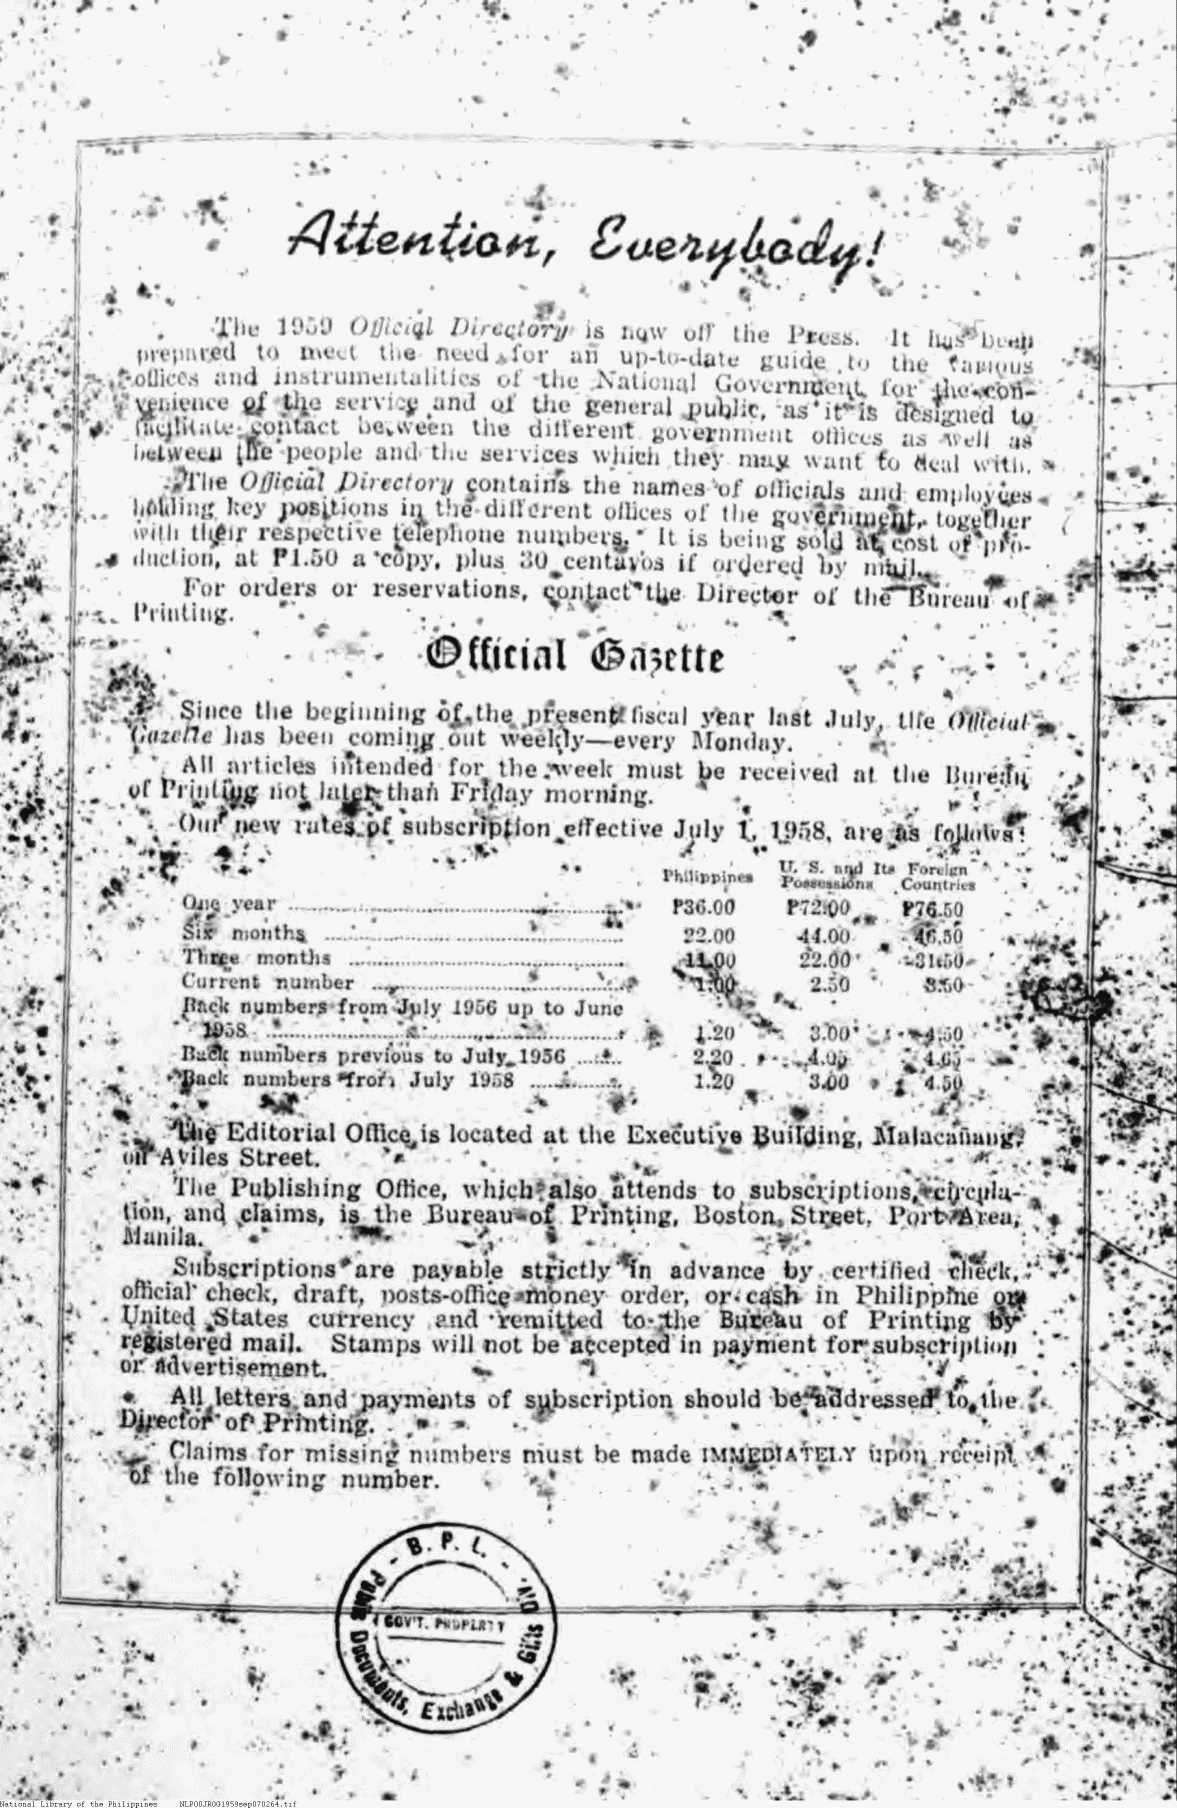 Attention, Everybody!
The 1959 Official Directory is now off the Press. It has been
prepared to meet the need for an up-to-date guide to the various
offices and instrumentalities of the National Government, for the con-
venience of the service and of the general public, as it is designed to
facilitate contact between the different government offices as well as
between the people and the services which they may want to deal with.
The Official Directory contains the names of officials and employees
holding key positions in the different offices of the government, together
with their respective telephone numbers. It is being sold at cost of pro-
duction, at ₱1.50 a copy, plus 30 centavos if ordered by mail.
For orders or reservations, contact the Director of the Bureau of
Printing.
Official Gazette
Since the beginning of the present fiscal year last July, the Official
Gazette has been coming out weekly—every Monday.
All articles intended for the week must be received at the Bureau
of Printing not later than Friday morning.
Our new rates of subscription effective July 1, 1958, are as follows:
Philippines U. S. and Its Possessions Foreign Countries
One year ₱36.00 ₱72.00 ₱76.50
Six months 22.00 44.00 46.50
Three months 11.00 22.00 31.50
Current number 1.00 2.50 3.50
Back numbers from July 1956 up to June
1958 1.20 3.00 4.50
Back numbers previous to July 1956 2.20 4.05 4.65
Back numbers from July 1958 1.20 3.00 4.50
The Editorial Office is located at the Executive Building, Malacañang,
on Aviles Street.
The Publishing Office, which also attends to subscriptions, circula-
tion, and claims, is the Bureau of Printing, Boston Street, Port Area,
Manila.
Subscriptions are payable strictly in advance by certified check,
official check, draft, posts-office money order, or cash in Philippine or
United States currency and remitted to the Bureau of Printing by
registered mail. Stamps will not be accepted in payment for subscription
or advertisement.
All letters and payments of subscription should be addressed to the
Director of Printing.
Claims for missing numbers must be made IMMEDIATELY upon receipt
of the following number.
- B. P. L. -
Public Documents, Exchange & Gifts Div.
GOV'T. PROPERTY
National Library of the Philippines NLPOOJROG1959sep070264.tif